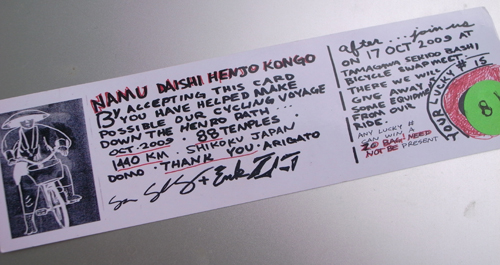 NAMU DAISHI HENJO KONGO
BY ACCEPTING THIS CARD
YOU HAVE HELPED MAKE
POSSIBLE OUR CYCLING VOYAGE
DOWN THE HENRO PATH...
OCT. 2009 . 88 TEMPLES...
1140 KM . SHIKOKU JAPAN
DOMO . THANK YOU . ARIGATO
after... join us
ON 17 OCT 2009 AT
TAMAGAWA SEKIDO BASHI
BICYCLE SWAP MEET.
THERE WE WILL
GIVE AWAY
SOME EQUIPMENT
FROM
RIDE.
ANY LUCKY #
CAN WIN A
BAG! NEED
NOT BE PRESENT
YOUR LUCKY # IS
8